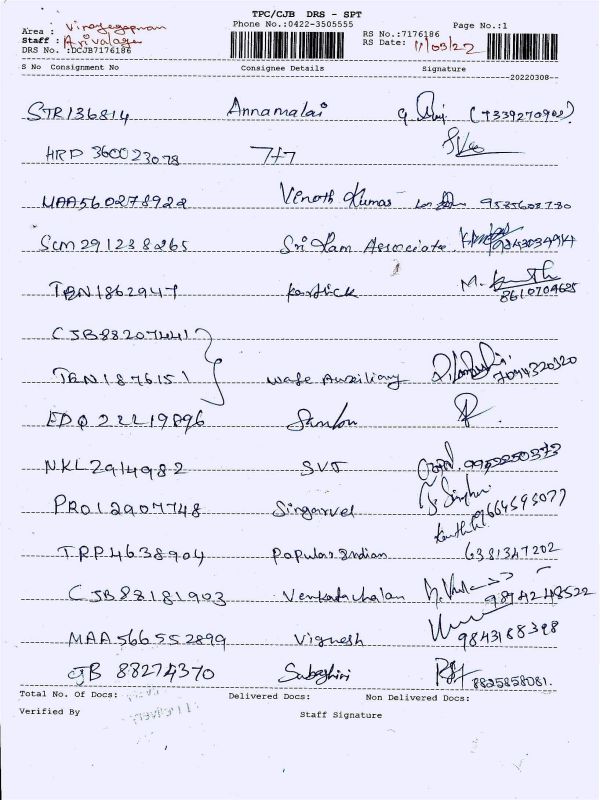 TPC/CJB DRS - SPT
Phone No.:0422-3505555
Page No.:1
Area :
Staff :
DRS No. :DCJB7176186
RS No.:7176186
RS Date: 11/03/22
S No Consignment No Consignee Details Signature
20220308
STR136814 Annamalai
HRD 360023078 747
MAA560278922 Vinoth Kumar 9585608780
SCM291238265 Sri Ram Associate
TBN1862947 Kartick M. 8610704625
CJB88207441
TBN1876151 Wafe Auxiliary 7094320320
EDQ22219896
NKL2914982 SVJ
PRO12907748 Singarvel
TRP4638904 Popular Indian 6381347202
CJB88181903 Venkatachalan 9894248522
MAA566552899 Vignesh 9843188398
CJB 88274370 8825858081.
Total No. Of Docs: Delivered Docs: Non Delivered Docs:
Verified By Staff Signature